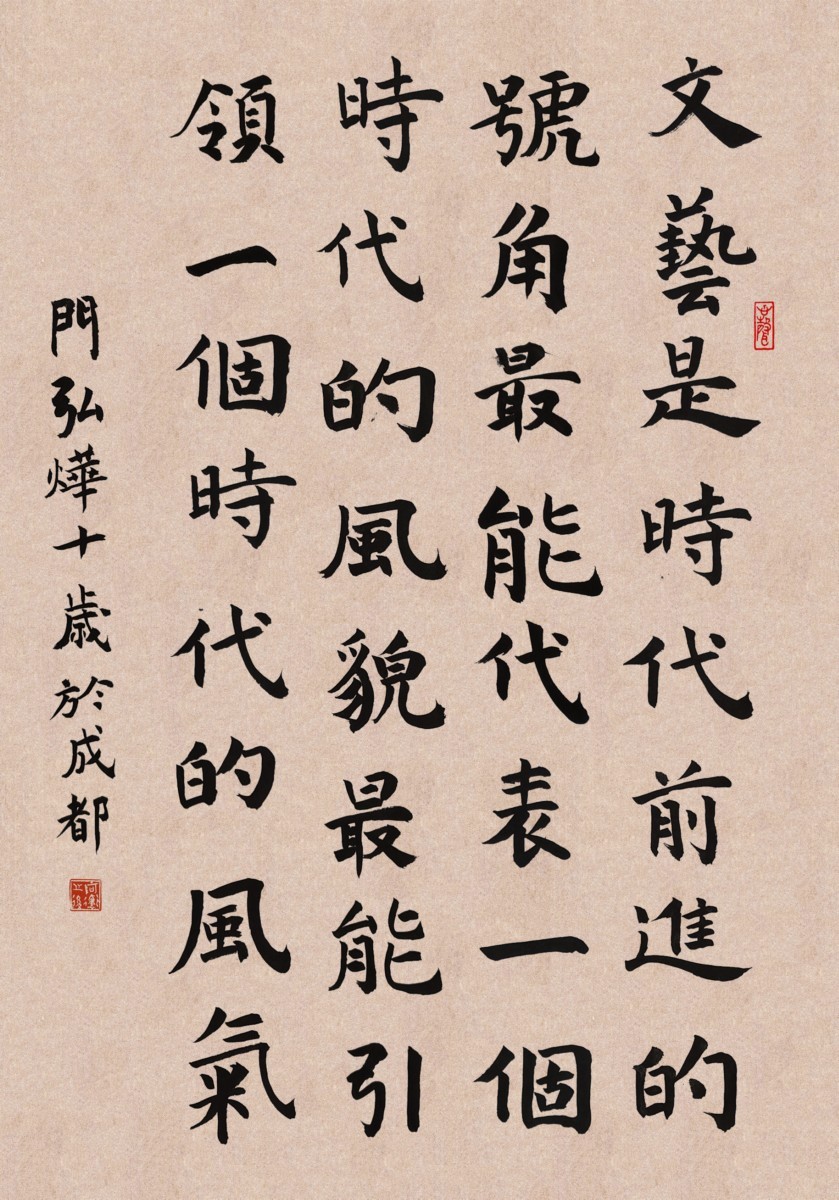 文藝是時代前進的
號角最能代表一個
時代的風貌最能引
領一個時代的風氣
門弘燁十歲於成都